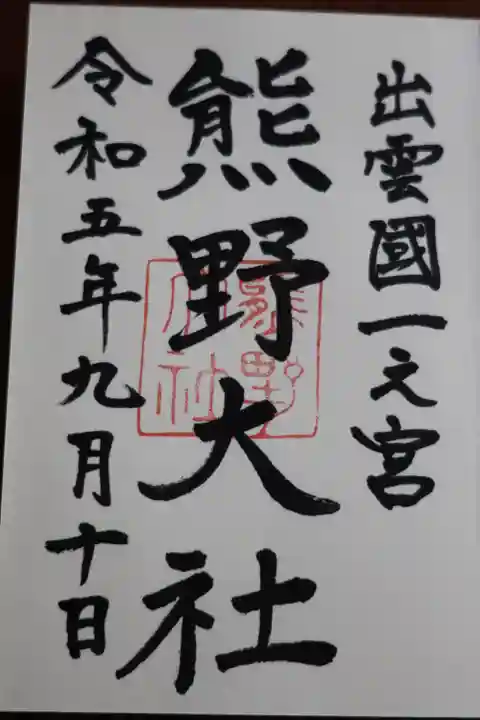 出雲國一之宮
熊野大社
熊野
大社
令和五年九月十日